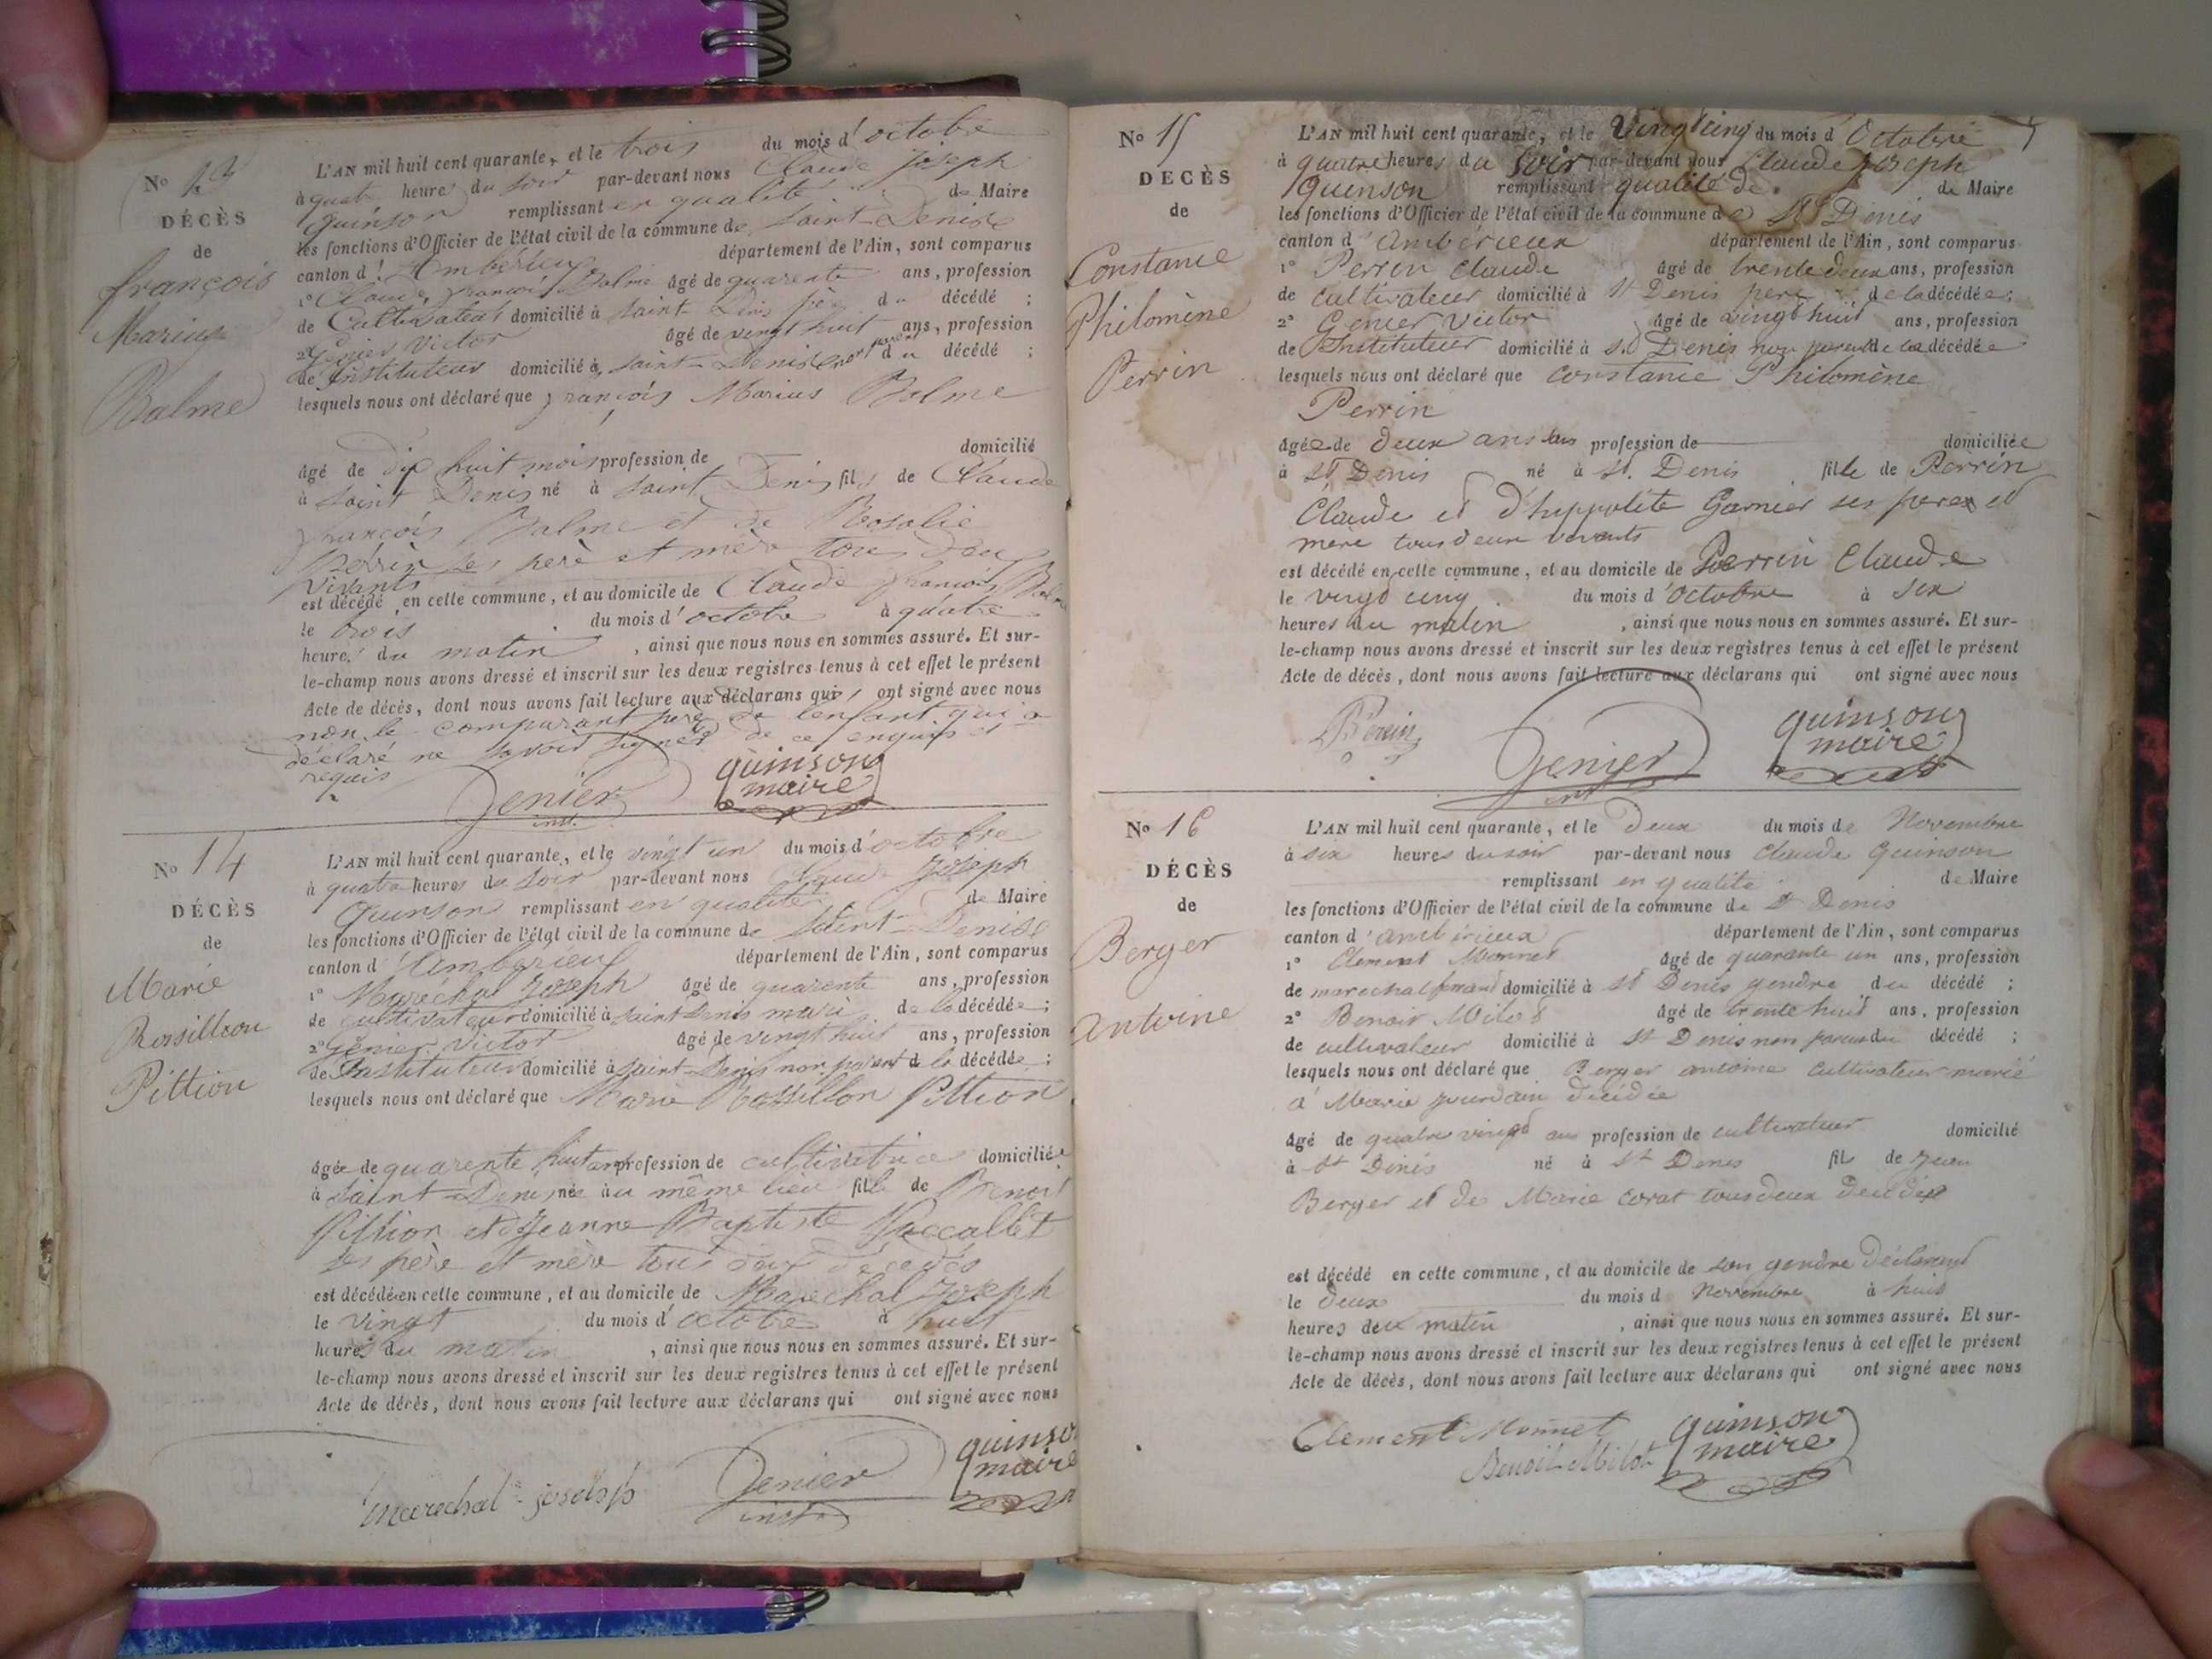 No 13
DÉCÈS
de
françois
Marius
Balme
L'AN mil huit cent quarante, et le trois du mois d'octobre
à quatre heures du soir par-devant nous Claude Joseph
Quinson remplissant en qualité de Maire
les fonctions d'Officier de l'état civil de la commune de Saint-Denis
canton d'Ambérieu département de l'Ain, sont comparus
1º Claude françois Balme âgé de quarente ans, profession
de Cultivateur domicilié à Saint-Denis père du décédé ;
2º Genier Victor âgé de vingt huit ans, profession
de Instituteur domicilié à Saint-Denis non parent du décédé ;
lesquels nous ont déclaré que françois Marius Balme
âgé de dix huit mois profession de domicilié
à Saint Denis né à Saint Denis fils de Claude
françois Balme et de Rosalie
Perrin ses père et mère tous deux
vivants
est décédé en cette commune, et au domicile de Claude françois Balme
le trois du mois d'octobre à quatre
heures du matin, ainsi que nous nous en sommes assuré. Et sur-
le-champ nous avons dressé et inscrit sur les deux registres tenus à cet effet le présent
Acte de décès, dont nous avons fait lecture aux déclarans qui ont signé avec nous
non le comparant père de l'enfant qui a
déclaré ne savoir signer de ce enquis et
requis
Genier
inst.
quinson
maire
No 14
DÉCÈS
de
Marie
Rossillion
Pittion
L'AN mil huit cent quarante, et le vingt un du mois d'octobre
à quatre heures du soir par-devant nous Claude Joseph
Quinson remplissant en qualité de Maire
les fonctions d'Officier de l'état civil de la commune de Saint-Denis
canton d'Ambérieu département de l'Ain, sont comparus
1º Maréchal Joseph âgé de quarente ans, profession
de cultivateur domicilié à Saint Denis mari de la décédée ;
2º Genier Victor âgé de vingt huit ans, profession
de Instituteur domicilié à Saint-Denis non parent de la décédée ;
lesquels nous ont déclaré que Marie Rossillon Pittion
âgée de quarente huit ans profession de cultivatrice domiciliée
à Saint-Denis née au même lieu fille de Benoit
Pittion et de Jeanne Baptiste
ses père et mère tous deux décédés
est décédée en cette commune, et au domicile de Maréchal Joseph
le vingt du mois d'octobre à huit
heures du matin, ainsi que nous nous en sommes assuré. Et sur-
le-champ nous avons dressé et inscrit sur les deux registres tenus à cet effet le présent
Acte de décès, dont nous avons fait lecture aux déclarans qui ont signé avec nous
marechal joseph
Genier
inst
quinson
maire
No 15
DECÈS
de
Constance
Philomène
Perrin
L'AN mil huit cent quarante, et le vingt cinq du mois d'Octobre
à quatre heures du soir par-devant nous Claude joseph
Quinson remplissant qualité de de Maire
les fonctions d'Officier de l'état civil de la commune de St Denis
canton d'ambérieux département de l'Ain, sont comparus
1º Perrin Claude âgé de trente deux ans, profession
de cultivateur domicilié à St Denis père de la décédée ;
2º Genier Victor âgé de vingt huit ans, profession
de Instituteur domicilié à St Denis non parent de la décédée
lesquels nous ont déclaré que constance Philomène
Perrin
âgée de deux ans profession de domiciliée
à St Denis né à St. Denis fille de Perrin
Claude et d'hyppolite Garnier ses père et
mère tous deux vivants
est décédé en cette commune, et au domicile de Perrin Claude
le vingt cinq du mois d'octobre à six
heures du matin, ainsi que nous nous en sommes assuré. Et sur-
le-champ nous avons dressé et inscrit sur les deux registres tenus à cet effet le présent
Acte de décès, dont nous avons fait lecture aux déclarans qui ont signé avec nous
Perrin
Genier
inst
quinson
maire
No 16
DÉCÈS
de
Berger
antoine
L'AN mil huit cent quarante, et le deux du mois de Novembre
à six heures du soir par-devant nous Claude Quinson
remplissant en qualité de Maire
les fonctions d'Officier de l'état civil de la commune de St Denis
canton d'ambérieux département de l'Ain, sont comparus
1º Clement Monnet âgé de quarante un ans, profession
de marechal ferrand domicilié à St Denis gendre du décédé ;
2º Benoit Milot âgé de trente huit ans, profession
de cultivateur domicilié à St Denis non parent du décédé ;
lesquels nous ont déclaré que Berger antoine cultivateur marié
à Marie jourdain décédée
âgé de quatre vingt ans profession de cultivateur domicilié
à St Denis né à St Denis fils de jean
Berger et de Marie corat tous deux décédés
est décédé en cette commune, et au domicile de son gendre déclarant
le deux du mois de Novembre à huit
heures du matin, ainsi que nous nous en sommes assuré. Et sur-
le-champ nous avons dressé et inscrit sur les deux registres tenus à cet effet le présent
Acte de décès, dont nous avons fait lecture aux déclarans qui ont signé avec nous
Clement Monnet
Benoit Milot
quinson
maire